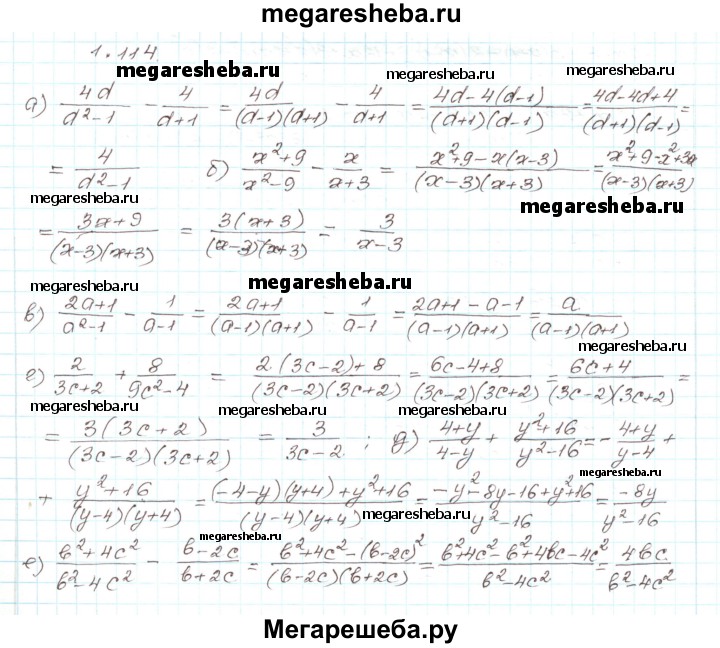 megaresheba.ru
1.114.
megaresheba.ru megaresheba.ru megaresheba.ru
а) 4d/(d²-1) - 4/(d+1) = 4d/((d-1)(d+1)) - 4/(d+1) = (4d-4(d-1))/((d+1)(d-1)) = (4d-4d+4)/((d+1)(d-1)) =
= 4/(d²-1) б) (x²+9)/(x²-9) - x/(x+3) = (x²+9-x(x-3))/((x-3)(x+3)) = (x²+9-x²+3x)/((x-3)(x+3))
megaresheba.ru megaresheba.ru megaresheba.ru
= (3x+9)/((x-3)(x+3)) = (3(x+3))/((x-3)(x+3)) = 3/(x-3)
megaresheba.ru megaresheba.ru
в) (2a+1)/(a²-1) - 1/(a-1) = (2a+1)/((a-1)(a+1)) - 1/(a-1) = (2a+1-a-1)/((a-1)(a+1)) = a/((a-1)(a+1))
megaresheba.ru
г) 2/(3c+2) + 8/(9c²-4) = (2·(3c-2)+8)/((3c-2)(3c+2)) = (6c-4+8)/((3c-2)(3c+2)) = (6c+4)/((3c-2)(3c+2)) =
megaresheba.ru megaresheba.ru megaresheba.ru
= (3(3c+2))/((3c-2)(3c+2)) = 3/(3c-2); д) (4+y)/(4-y) + (y²+16)/(y²-16) = -(4+y)/(y-4) +
megaresheba.ru
+ (y²+16)/((y-4)(y+4)) = ((-4-y)(y+4)+y²+16)/((y-4)(y+4)) = (-y²-8y-16+y²+16)/(y²-16) = -8y/(y²-16)
megaresheba.ru megaresheba.ru megaresheba.ru
е) (b²+4c²)/(b²-4c²) - (b-2c)/(b+2c) = (b²+4c²-(b-2c)²)/((b-2c)(b+2c)) = (b²+4c²-b²+4bc-4c²)/(b²-4c²) = 4bc/(b²-4c²)
Мегарешеба.ру